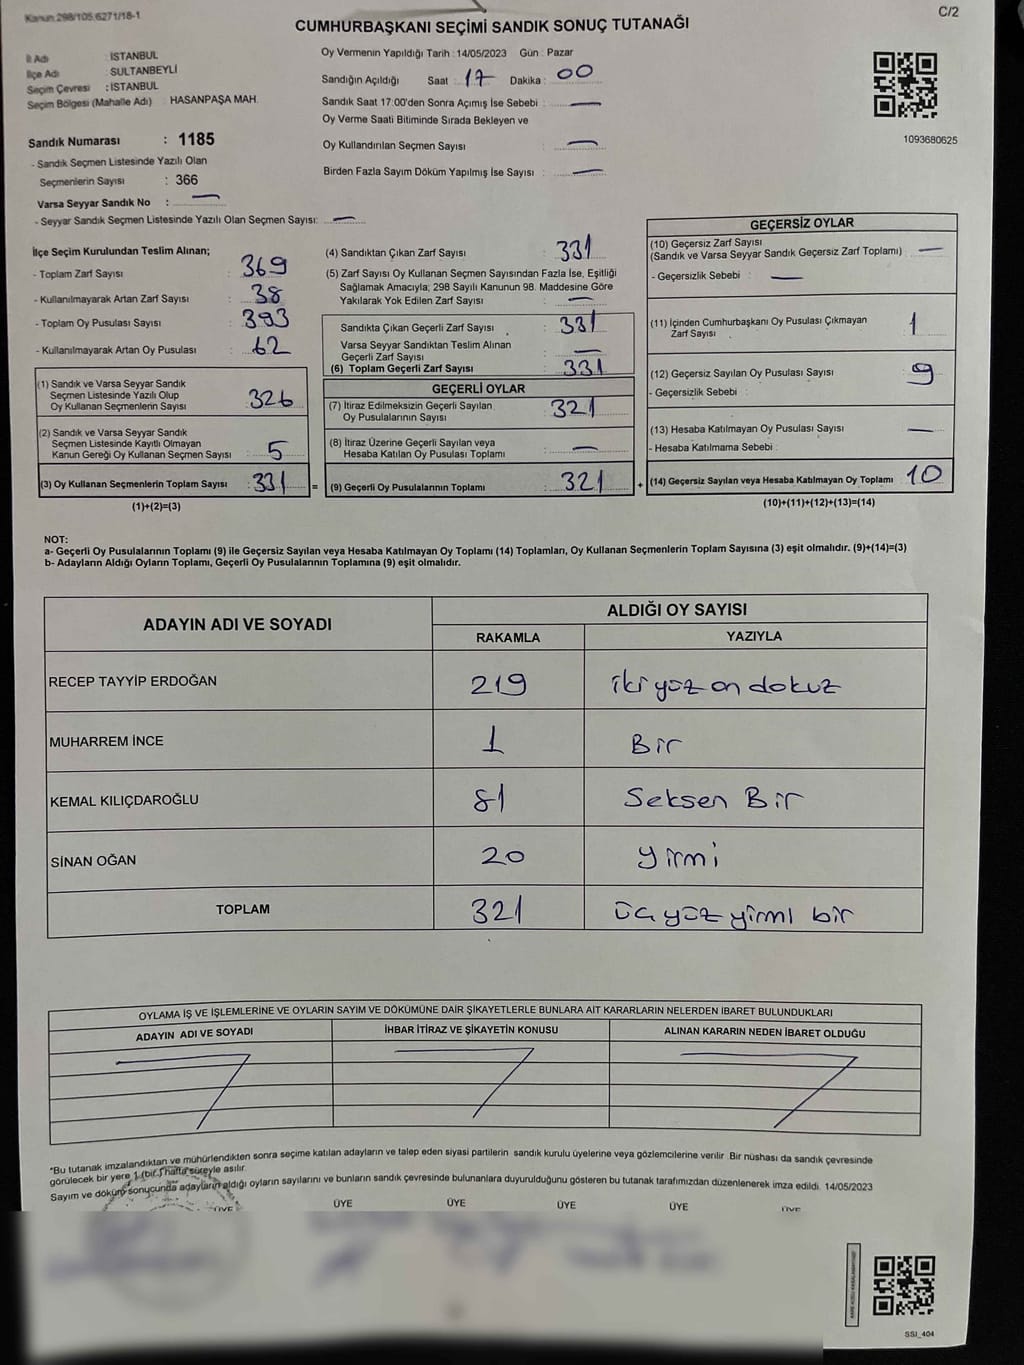 Kanun:298/105;6271/18-1
C/2
CUMHURBAŞKANI SEÇİMİ SANDIK SONUÇ TUTANAĞI
İl Adı : İSTANBUL
İlçe Adı : SULTANBEYLİ
Seçim Çevresi : İSTANBUL
Seçim Bölgesi (Mahalle Adı) : HASANPAŞA MAH.
Sandık Numarası : 1185
- Sandık Seçmen Listesinde Yazılı Olan
Seçmenlerin Sayısı : 366
Varsa Seyyar Sandık No : —
- Seyyar Sandık Seçmen Listesinde Yazılı Olan Seçmen Sayısı: —
Oy Vermenin Yapıldığı Tarih : 14/05/2023 Gün : Pazar
Sandığın Açıldığı Saat : 17 Dakika : 00
Sandık Saat 17:00'den Sonra Açımış İse Sebebi : —
Oy Verme Saati Bitiminde Sırada Bekleyen ve
Oy Kullandırılan Seçmen Sayısı : —
Birden Fazla Sayım Döküm Yapılmış İse Sayısı : —
1093680625
İlçe Seçim Kurulundan Teslim Alınan;
- Toplam Zarf Sayısı : 369
- Kullanılmayarak Artan Zarf Sayısı : 38
- Toplam Oy Pusulası Sayısı : 393
- Kullanılmayarak Artan Oy Pusulası : 62
(1) Sandık ve Varsa Seyyar Sandık
Seçmen Listesinde Yazılı Olup
Oy Kullanan Seçmenlerin Sayısı : 326
(2) Sandık ve Varsa Seyyar Sandık
Seçmen Listesinde Kayıtlı Olmayan
Kanun Gereği Oy Kullanan Seçmen Sayısı : 5
(3) Oy Kullanan Seçmenlerin Toplam Sayısı : 331 =
(1)+(2)=(3)
(4) Sandıktan Çıkan Zarf Sayısı : 331
(5) Zarf Sayısı Oy Kullanan Seçmen Sayısından Fazla İse, Eşitliği
Sağlamak Amacıyla; 298 Sayılı Kanunun 98. Maddesine Göre
Yakılarak Yok Edilen Zarf Sayısı : —
Sandıkta Çıkan Geçerli Zarf Sayısı : 331
Varsa Seyyar Sandıktan Teslim Alınan
Geçerli Zarf Sayısı : —
(6) Toplam Geçerli Zarf Sayısı : 331
GEÇERLİ OYLAR
(7) İtiraz Edilmeksizin Geçerli Sayılan
Oy Pusulalarının Sayısı : 321
(8) İtiraz Üzerine Geçerli Sayılan veya
Hesaba Katılan Oy Pusulası Toplamı : —
(9) Geçerli Oy Pusulalarının Toplamı : 321 +
GEÇERSİZ OYLAR
(10) Geçersiz Zarf Sayısı
(Sandık ve Varsa Seyyar Sandık Geçersiz Zarf Toplamı) : —
- Geçersizlik Sebebi : —
(11) İçinden Cumhurbaşkanı Oy Pusulası Çıkmayan
Zarf Sayısı : 1
(12) Geçersiz Sayılan Oy Pusulası Sayısı : 9
- Geçersizlik Sebebi :
(13) Hesaba Katılmayan Oy Pusulası Sayısı : —
- Hesaba Katılmama Sebebi :
(14) Geçersiz Sayılan veya Hesaba Katılmayan Oy Toplamı : 10
(10)+(11)+(12)+(13)=(14)
NOT:
a- Geçerli Oy Pusulalarının Toplamı (9) ile Geçersiz Sayılan veya Hesaba Katılmayan Oy Toplamı (14) Toplamları, Oy Kullanan Seçmenlerin Toplam Sayısına (3) eşit olmalıdır. (9)+(14)=(3)
b- Adayların Aldığı Oyların Toplamı, Geçerli Oy Pusulalarının Toplamına (9) eşit olmalıdır.
ADAYIN ADI VE SOYADI
ALDIĞI OY SAYISI
RAKAMLA YAZIYLA
RECEP TAYYİP ERDOĞAN 219 iki yüz on dokuz
MUHARREM İNCE 1 Bir
KEMAL KILIÇDAROĞLU 81 Seksen Bir
SİNAN OĞAN 20 yirmi
TOPLAM 321 üç yüz yirmi bir
OYLAMA İŞ VE İŞLEMLERİNE VE OYLARIN SAYIM VE DÖKÜMÜNE DAİR ŞİKAYETLERLE BUNLARA AİT KARARLARIN NELERDEN İBARET BULUNDUKLARI
ADAYIN ADI VE SOYADI İHBAR İTİRAZ VE ŞİKAYETİN KONUSU ALINAN KARARIN NEDEN İBARET OLDUĞU
*Bu tutanak imzalandıktan ve mühürlendikten sonra seçime katılan adayların ve talep eden siyasi partilerin sandık kurulu üyelerine veya gözlemcilerine verilir Bir nüshası da sandık çevresinde
görülecek bir yere 1 (bir) hafta süreyle asılır.
Sayım ve döküm sonucunda adayların aldığı oyların sayılarını ve bunların sandık çevresinde bulunanlara duyurulduğunu gösteren bu tutanak tarafımızdan düzenlenerek imza edildi. 14/05/2023
ÜYE ÜYE ÜYE ÜYE ÜYE ÜYE
SSI_404